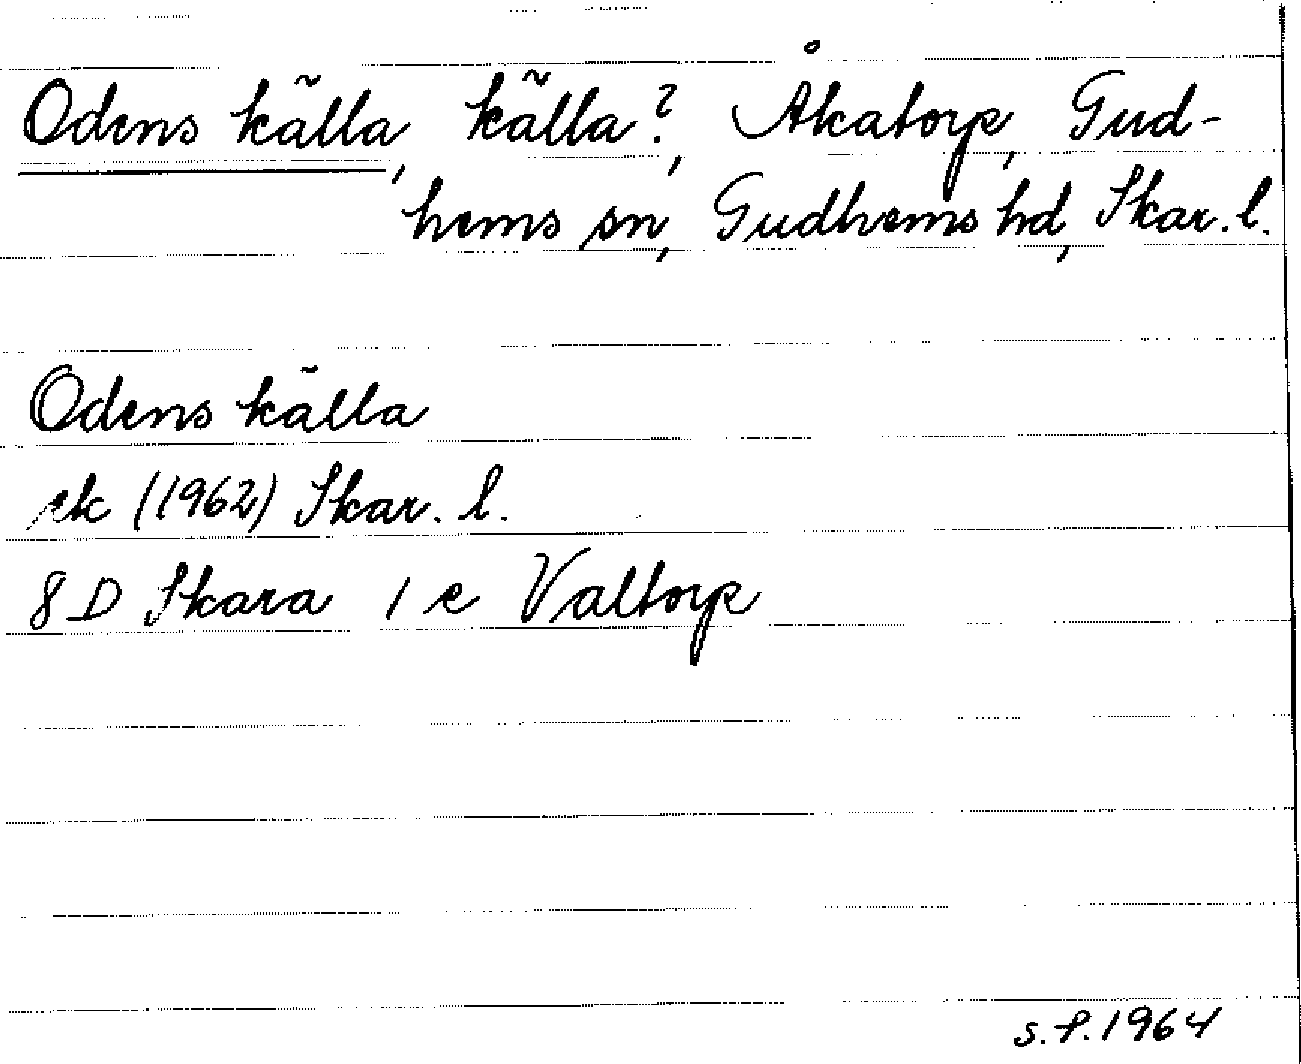 Odens källa, källa?, Åkatorp, Gud-
hems sn, Gudhems hd, Skar. l.
Odens källa
ek (1962) Skar. l.
8 D Skara 1 e Valtorp
S.P. 1964